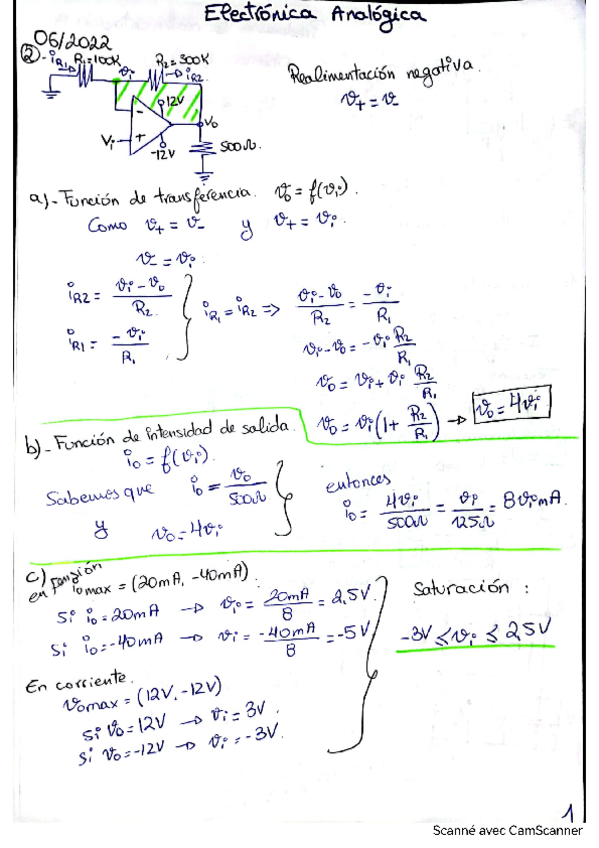 Electrónica Analógica
06/2022
②- iR1 R1=100K vi R2=300K iR2
Realimentación negativa.
v+ = v-
12V
Vi
-
+
Vo
-12V
500Ω.
a)- Función de transferencia. vo = f(vi).
Como v+ = v- y v+ = vi.
v- = vi.
iR2 = (vi - vo)/R2
iR1 = -vi/R1
iR1 = iR2 => (vi - vo)/R2 = -vi/R1
vi - vo = -vi R2/R1
vo = vi + vi R2/R1
vo = vi (1 + R2/R1) → vo = 4vi
b)- Función de intensidad de salida.
io = f(vi).
Sabemos que io = vo/500Ω
y vo = 4vi
entonces
io = 4vi/500Ω = vi/125Ω = 8vi mA
c)
en tensión
iomax = (20mA, -40mA).
Si io = 20mA → vi = 20mA/8 = 2,5V
Si io = -40mA → vi = -40mA/8 = -5V
Saturación :
-3V ≤ vi ≤ 2,5V
En corriente.
vomax = (12V, -12V)
Si vo = 12V → vi = 3V.
Si vo = -12V → vi = -3V.
1
Scanné avec CamScanner